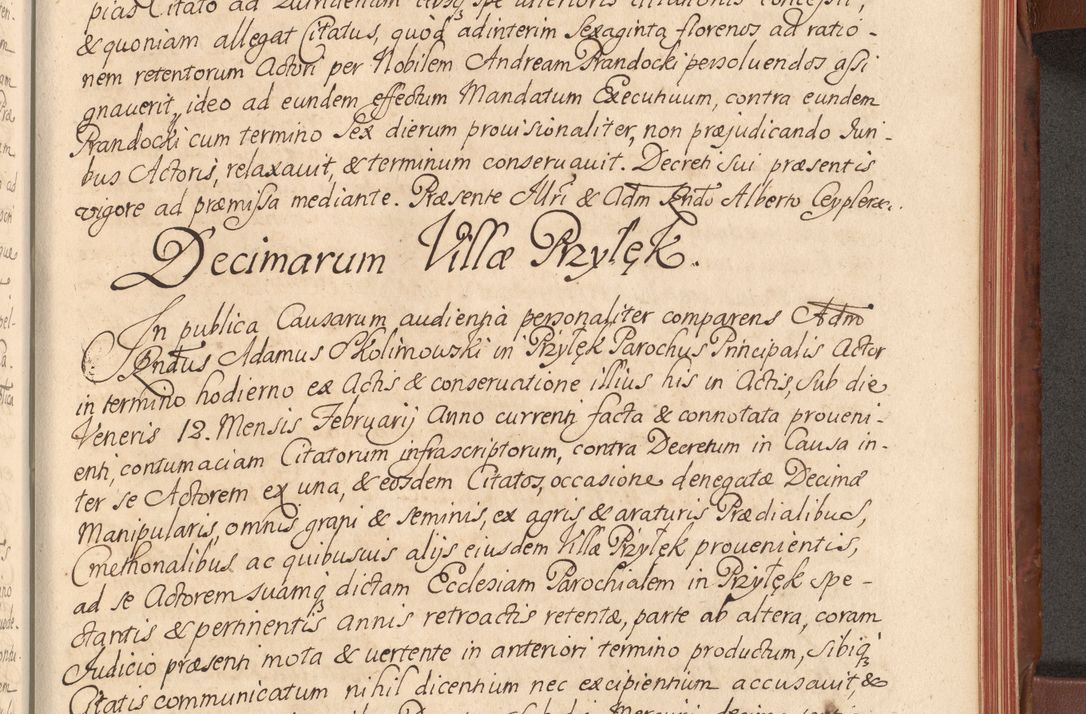 pias Citato ad
& quoniam allegat Citatus, quod adinterim Sexaginta florenos ad ratio-
nem retentorum Actori per Nobilem Andream Prandocki persoluendos assi
gnauerit, ideo ad eundem effectum Mandatum Executiuum, contra eundem
Prandocki cum termino Sex dierum prouisionaliter, non præjudicando Iuri-
bus Actoris, relaxauit, & terminum conseruauit. Decreti sui præsentis
vigore ad præmissa mediante. Præsente Illri & Adm Rndo Alberto Ceypler &.
Decimarum Villæ Przyłęk.
In publica Causarum audientia personaliter comparens Adm
Rndus Adamus Skolimowski in Przyłęk Parochus Principalis Actor
in termino hodierno ex Actis & conseruatione illius his in Actis, sub die
Veneris 12. Mensis Februarij Anno currenti facta & connotata proueni-
enti, contumaciam Citatorum infrascriptorum, contra Decretum in Causa in-
ter se Actorem ex una, & eosdem Citatos, occasione denegatæ Decimæ
Manipularis, omnis grani & seminis, ex agris & araturis Prædialibus,
Cmethonalibus ac quibusuis alijs eiusdem Villæ Przyłęk prouenientis,
ad se Actorem suamq3 dictam Ecclesiam Parochialem in Przyłęk spe-
ctantis & pertinentis annis retroactis retentæ, parte ab altera, coram
Iudicio præsenti mota & vertente in anteriori termino productum, sibiq3
Citatis communicatum nihil dicentium nec excipientium accusauit &